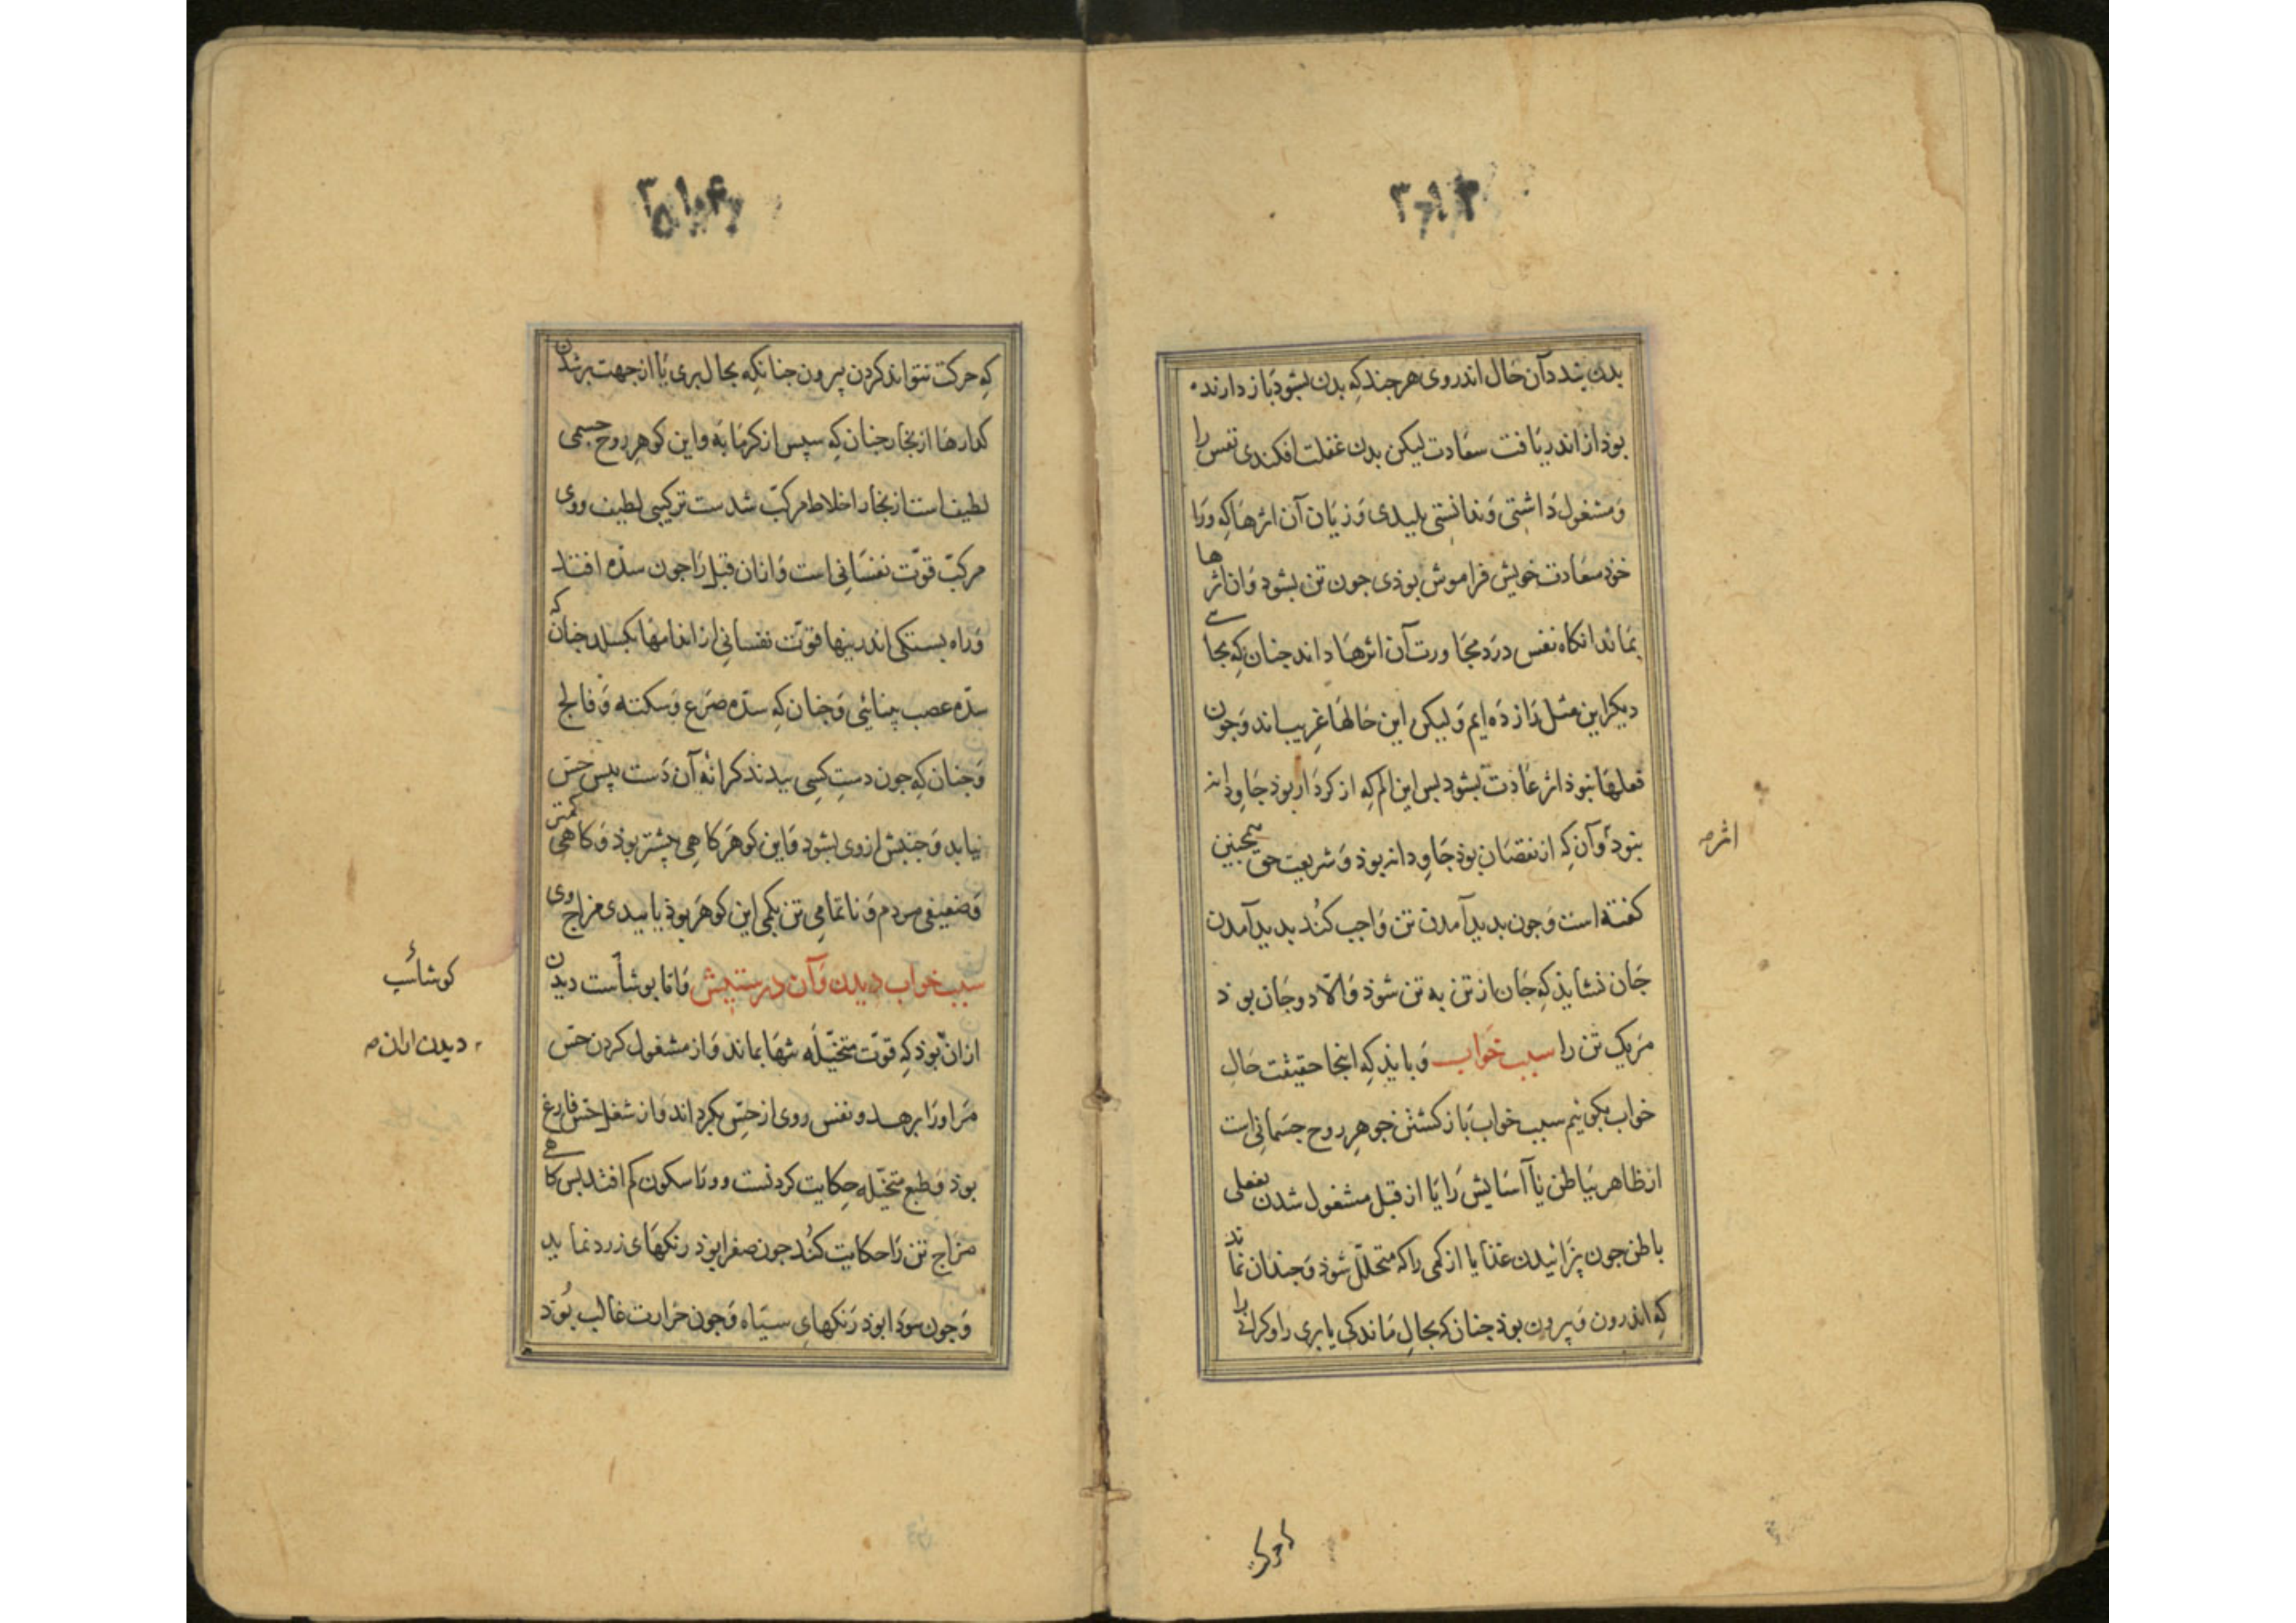 بدن شد و آن حال اندر وی هر چند که بدن بشود باز دارنده
بوذ از اندر یافت سعادت لیکن بدن غفلت افکندی نفس را
وَمشغول داشتی وَندانستی پلیدی وَزیان آن اثرها که ورَا
خوذ سعادت خویش فراموش بوذی جون تن بشود وَان اثرها
بماند انکاه نفس درد مجاورت آن اثرها داند جنان که بجا
دیکر این مثل زازده ایم وَلیکن این حالها غریب اند وَجون
فعلها نبوذ اثر عادت بشود بس این الم که از کردار بوذ جاودانه
نبود وَآن که از نقصان بوذ جاودانه بوذ وَشریعت حق همجنین
کفته است وَجون بدید آمدن تن وَاجب کند بدید آمدن
جَان نشایذ که جَان از تن به تن شوذ وَالّا دو جَان بوذ
مَریک تن را سبب خواب وَبایذ که اینجا حقیقت حَال
خواب بکوییم سبب خواب باز کشتن جوهر روح جسمانی است
از ظاهر بباطن یا آسایش را یا از قبل مشغول شدن بفعلی
باطن جون بزائیدن غذا یا از کمی را که متحلّل شوذ وَجندان نماند
که اندرون وَبیرون بوذ جنان که بحال ماندکی یا بری را وکرانی را
اثر
۳۱۴
که حرکت نتواند کردن بیرون جنانکه بحال بری یا از جهت بر شدن
کدارها از بخار جنان که سپس از کرمابه وَاین کوهر روح جسمی
لطیف است از بخار اخلاط مرکّب شدست ترکیبی لطیف ووی
مرکب قوّت نفسانی است وَازان قبل را جون سدّه افتد
وَراه بستکی اندرینها قوّت نفسانی از اندامها بکسلد جنان که
سدّه عصب بینائی وَجنان که سدّه صرع وَسکته وَفالج
وَجنان که جون دستِ کسی ببندند کرانهٔ آن دَست بس حس
نیابد وَجنبش از وی بشود وَاین کوهر کاهی بیشتر بوذ وَکاهی کمتر
وَضعیفی مردم وَناتمامی تن بکمی این کوهر بوذ یا ببدی مزاج وی
سبب خواب دیدن وَآن درستیش وَاما بوشاست دیدن
ازان بوذ که قوّت متخیّله تنها بماند وَاز مشغول کردن حسّ
مَر اورا برهد و نفس روی از حسّ بکرداند وَاز شغل حسّ فارغ
بوذ وَطبع متخیّله حکایت کردنست ووتا سکون کم افتد بس کاهی
مزاج تن را حکایت کند جون صفرا بوذ رنکهای زرد نماید
وَجون سودا بوذ رَنکهایِ سیاه وَجون حَرارت غالب بُوَذ
کوشائب
دیدن اران